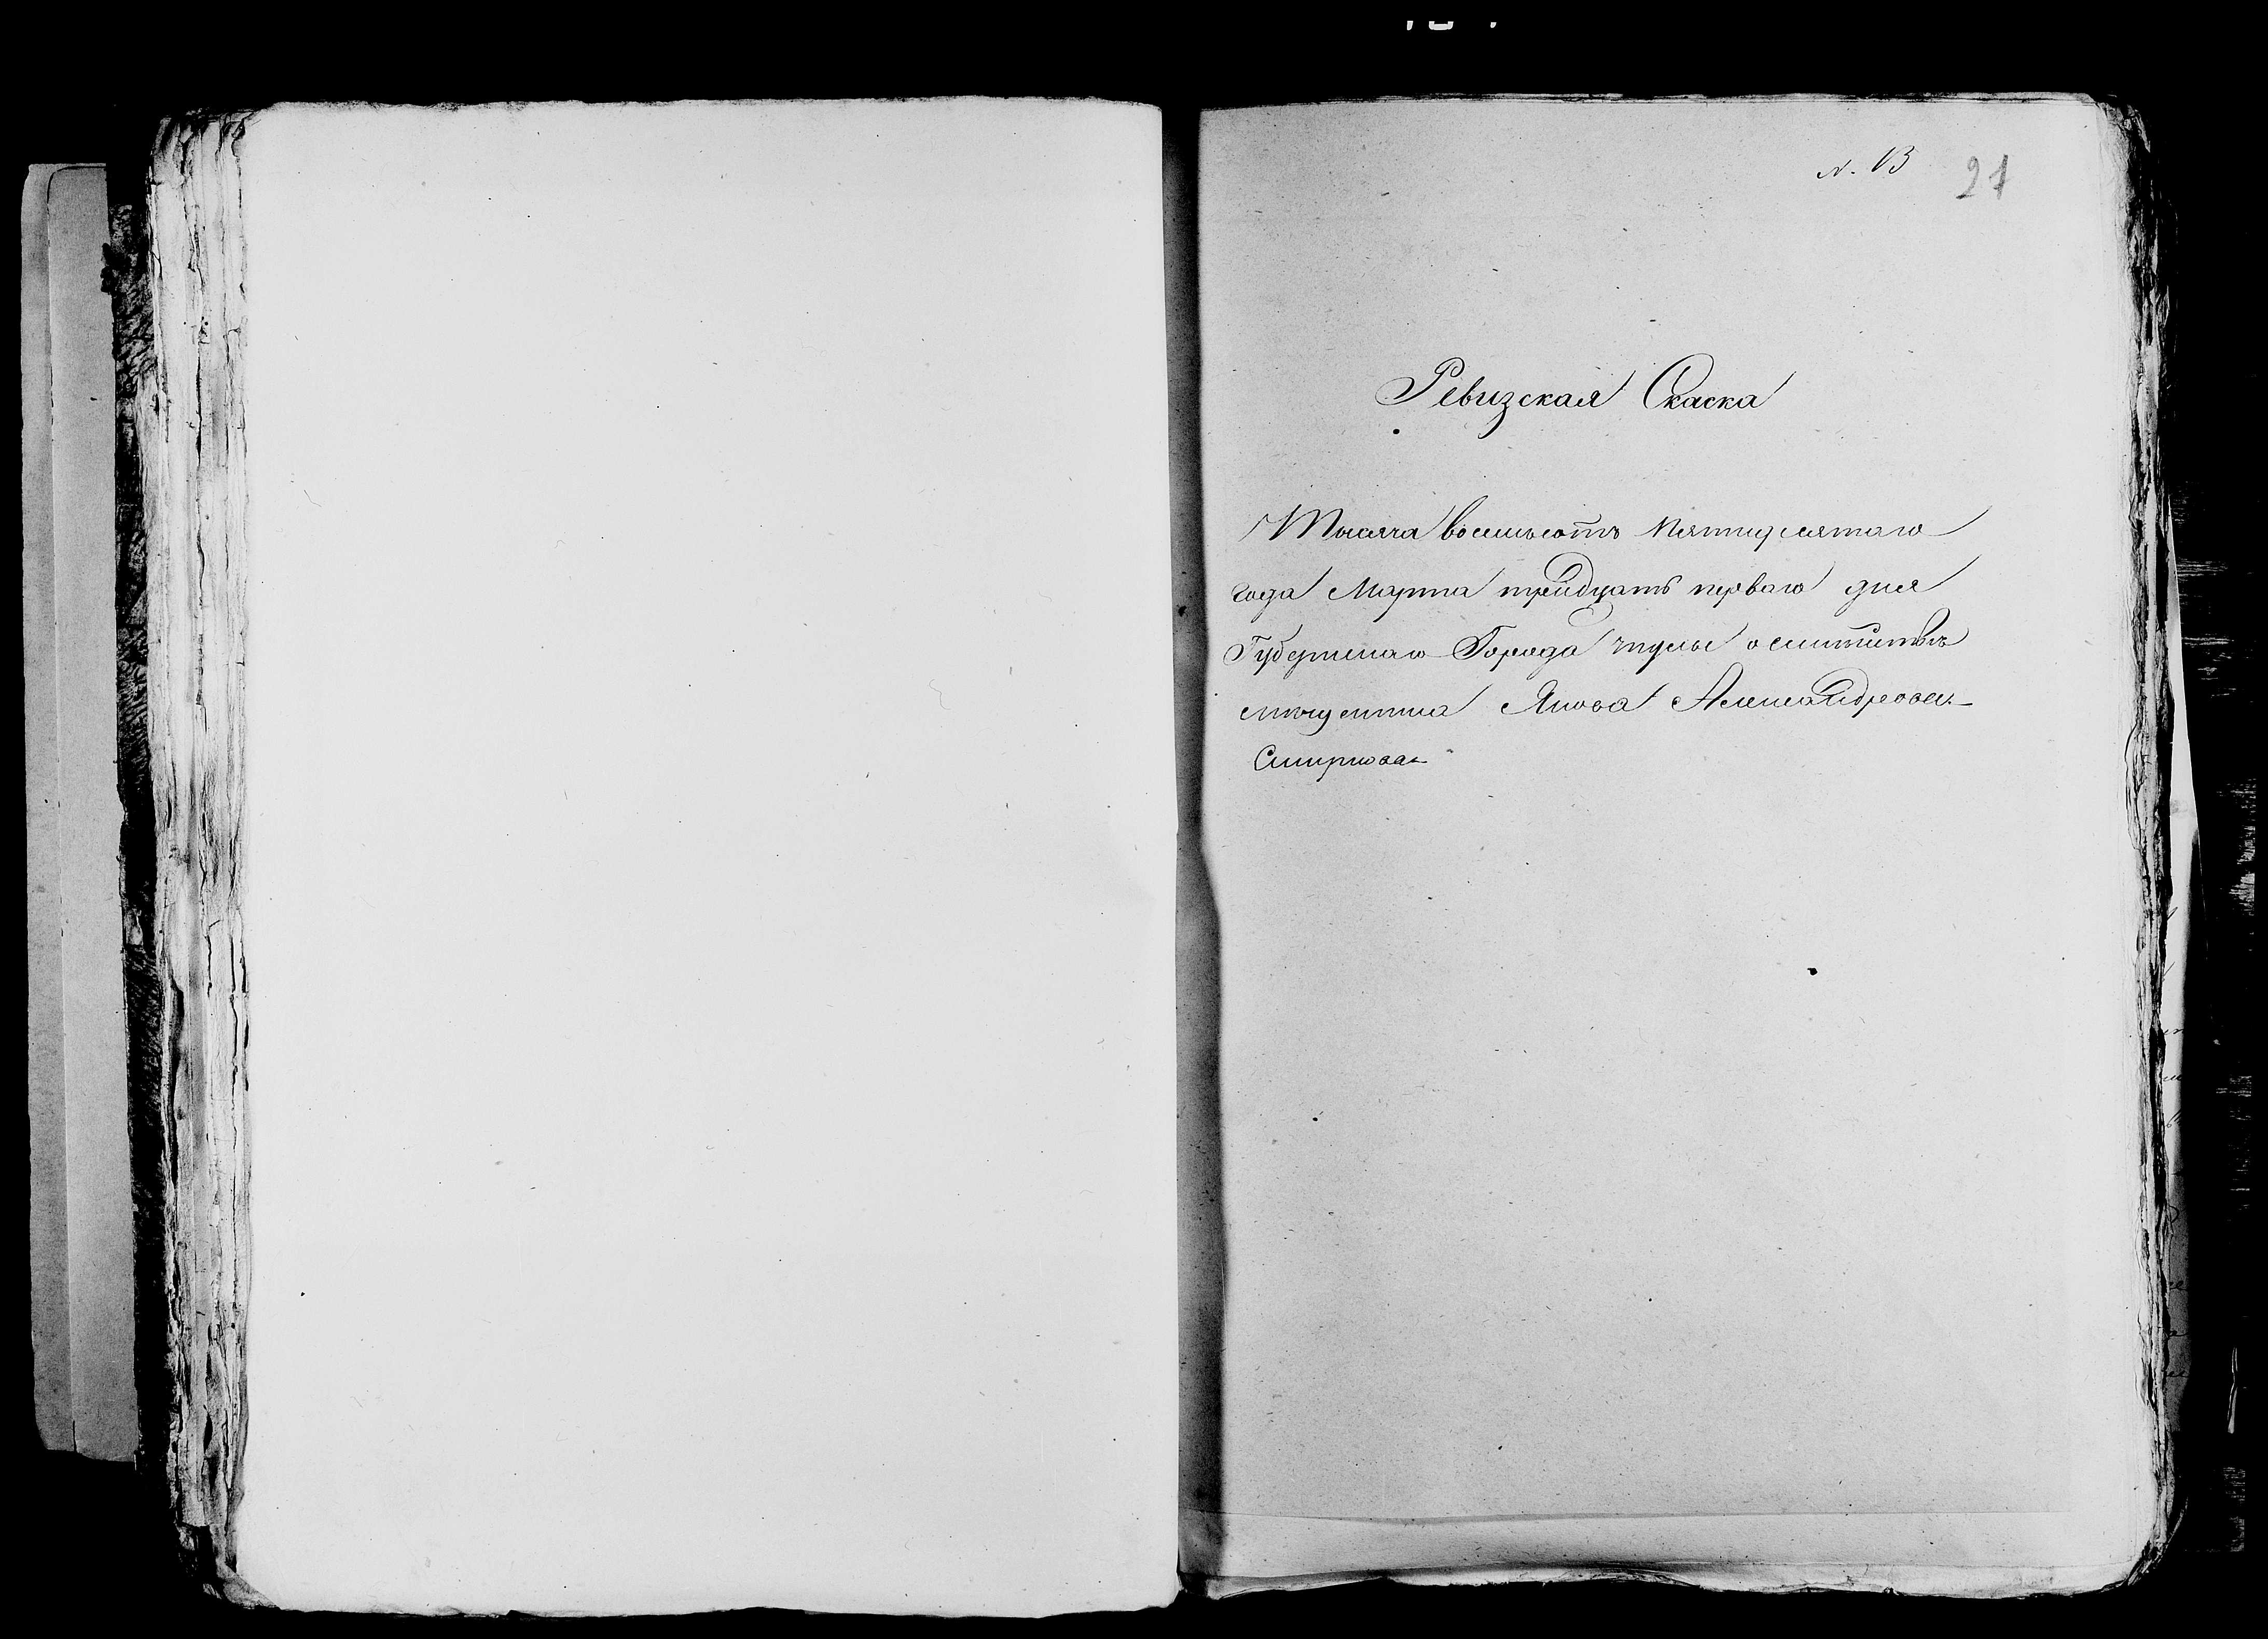 N. 13 21
Ревизская Скаска
Тысяча восемьсотъ пятидесятаго
года Марта тридцать перваго дня
Губернскаго Города тулы о
Якова Александрова
Смирнова